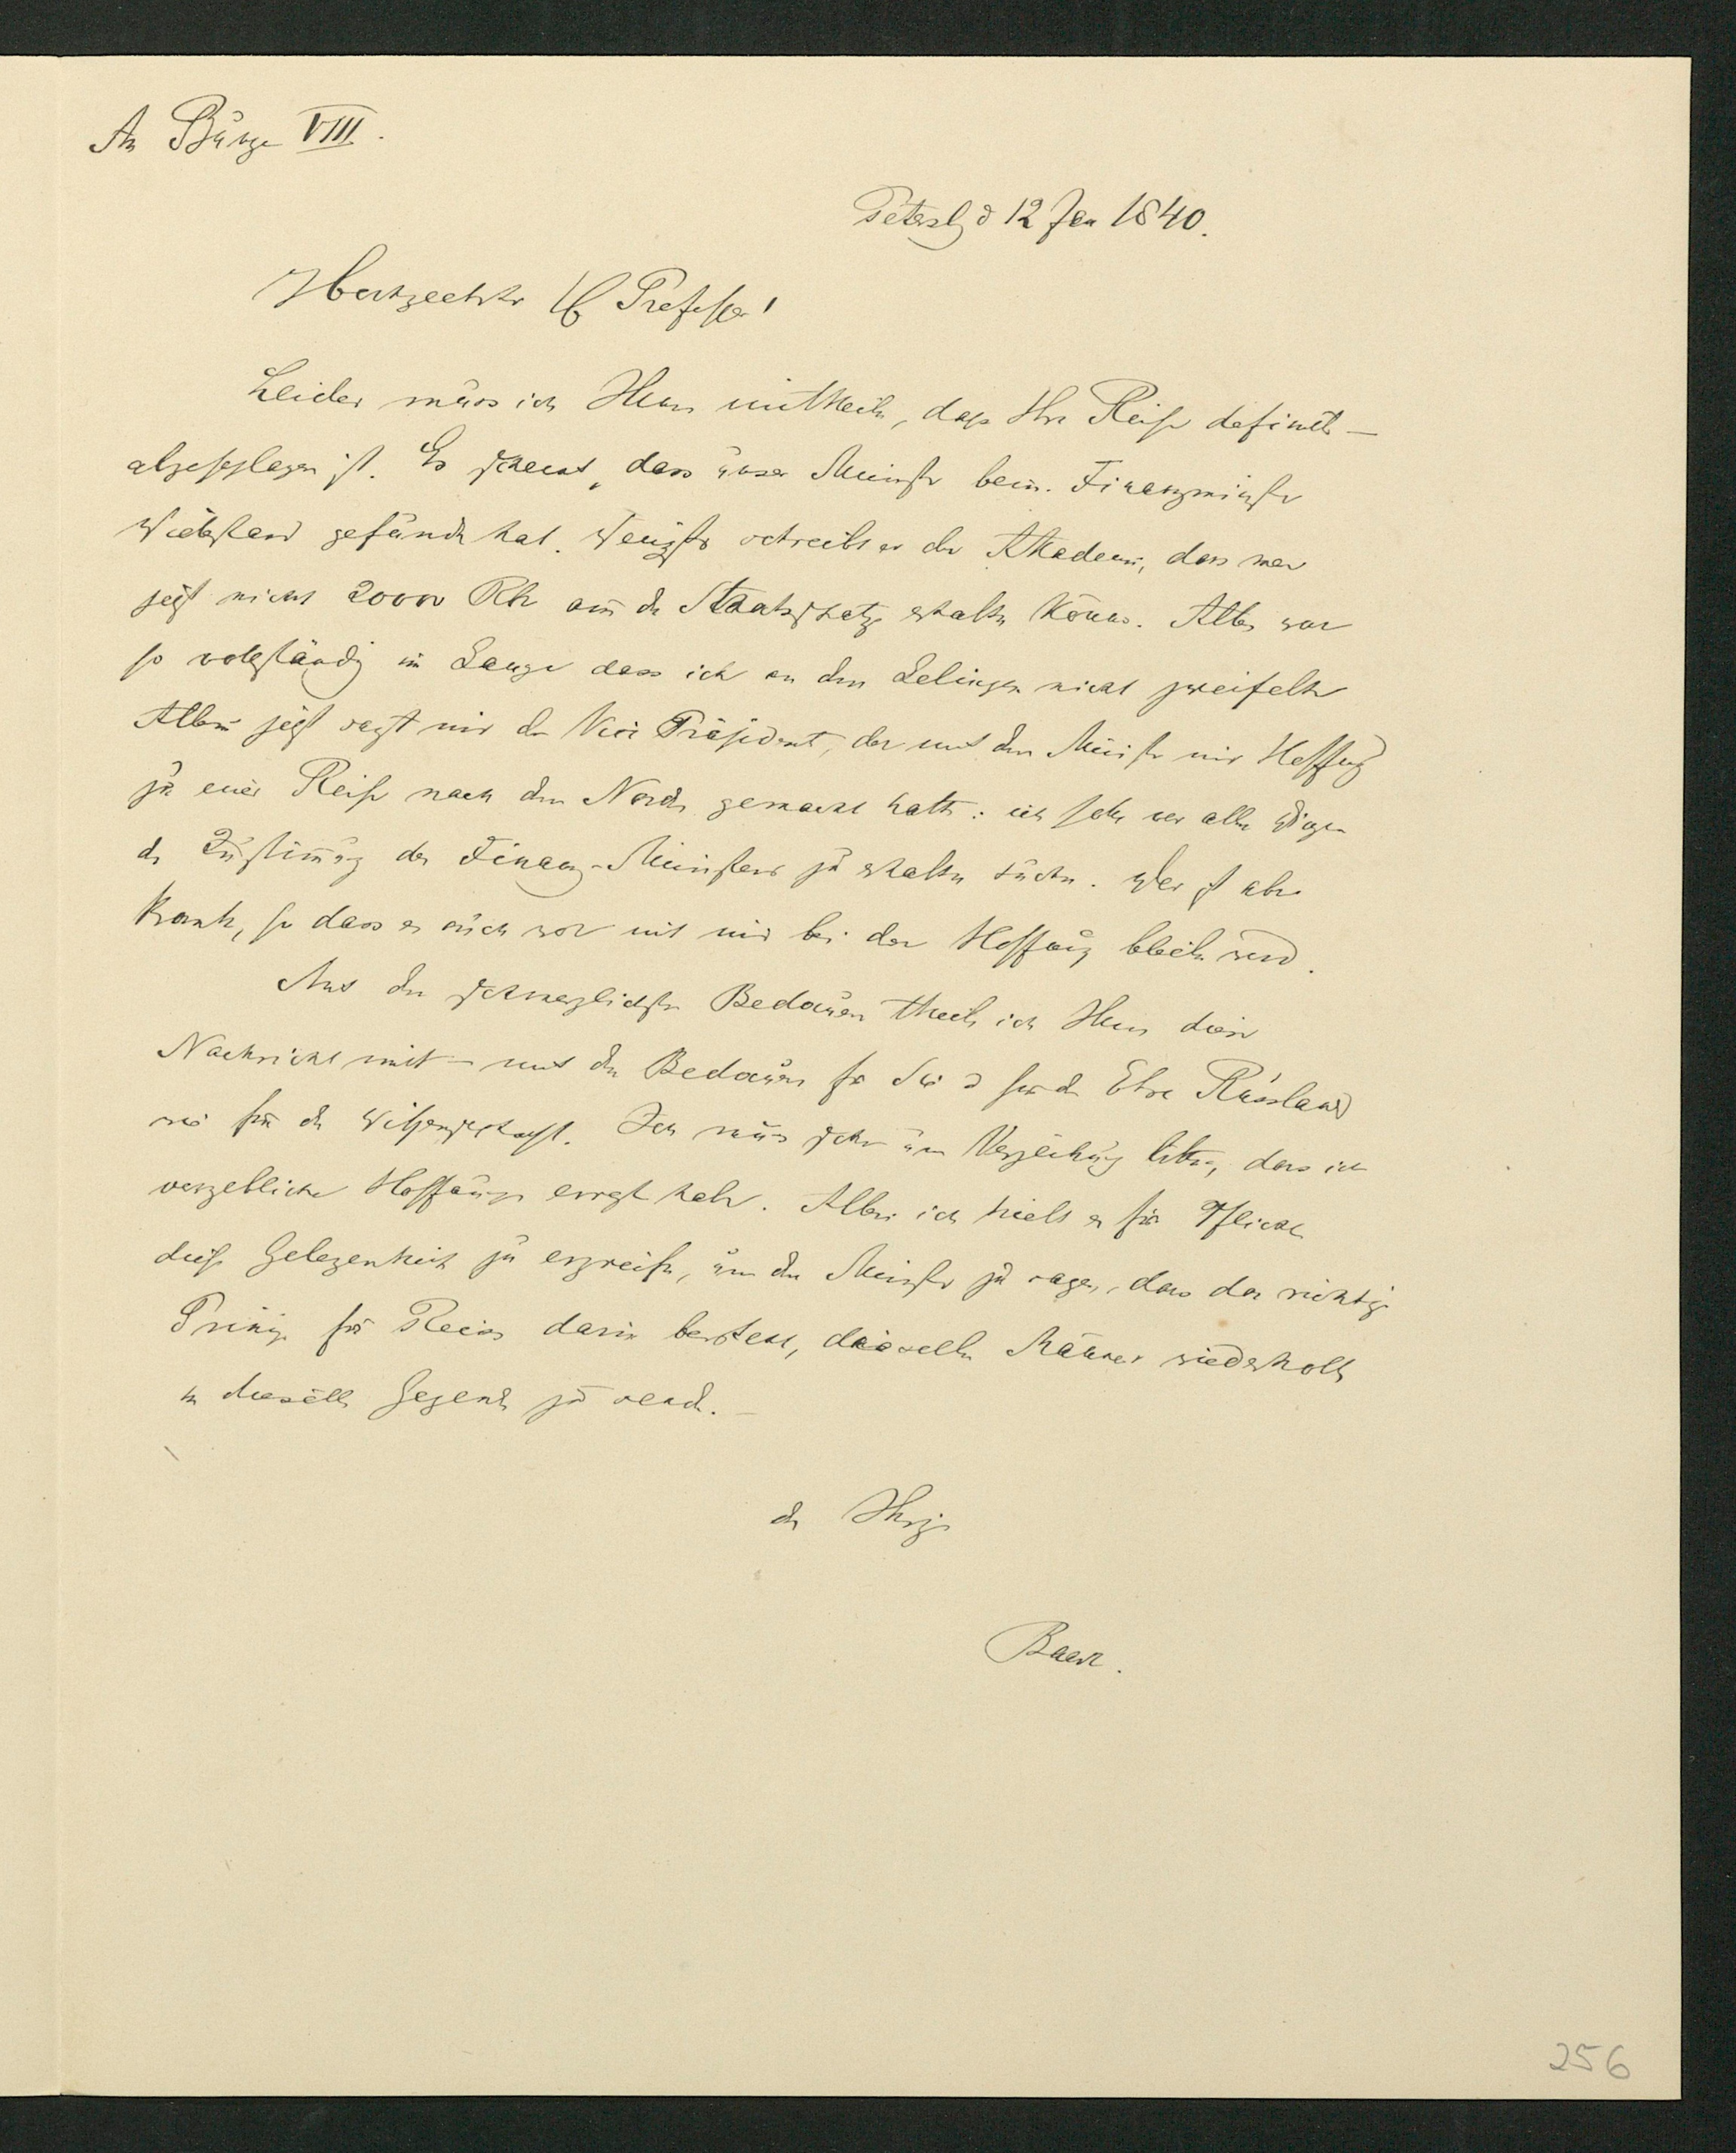 An Bunge VIII.
Petersbg d 12 Jan 1840.
Hochgeehrter H Professor!
Leider muss ich Ihnen mittheilen, dass Ihre Reise definitiv
abgeschlagen ist. Es scheint, dass unser Minister beim Finanzminister
Widerstand gefunden hat. Wenigstens schreibt er der Akademie, dass man
jetzt nicht 20000 Rbl aus dem Staatsschatze erhalten könne. Alles war
so vollständig im Gange dass ich an dem Gelingen nicht zweifelte
Allein jetzt sagt mir der Vice Präsident, der mit dem Minister mir Hoffnung
zu einer Reise nach dem Norden gemacht hatte: ich solle vor allen Dingen
die Zustimmung des Finanz-Ministers zu erhalten suchen. Der ist aber
krank, so dass es auch wol mit mir bei der Hoffnung bleiben wird.
Mit dem schmerzlichsten Bedauern theile ich Ihnen diese
Nachricht mit – mit dem Bedauern für Sie u für die Ehre Russlands
wie für die Wissenschaft. Ich muss sehr um Verzeihung bitten, dass ich
vergebliche Hoffnungen erregt habe. Allein ich hielt es für Pflicht
diese Gelegenheit zu ergreifen, um dem Minister zu sagen, dass das richtige
Princip für Reisen darin bestehe, dieselben Männer wiederholt
in dieselbe Gegend zu senden. –
der Ihrige
Baer.
256